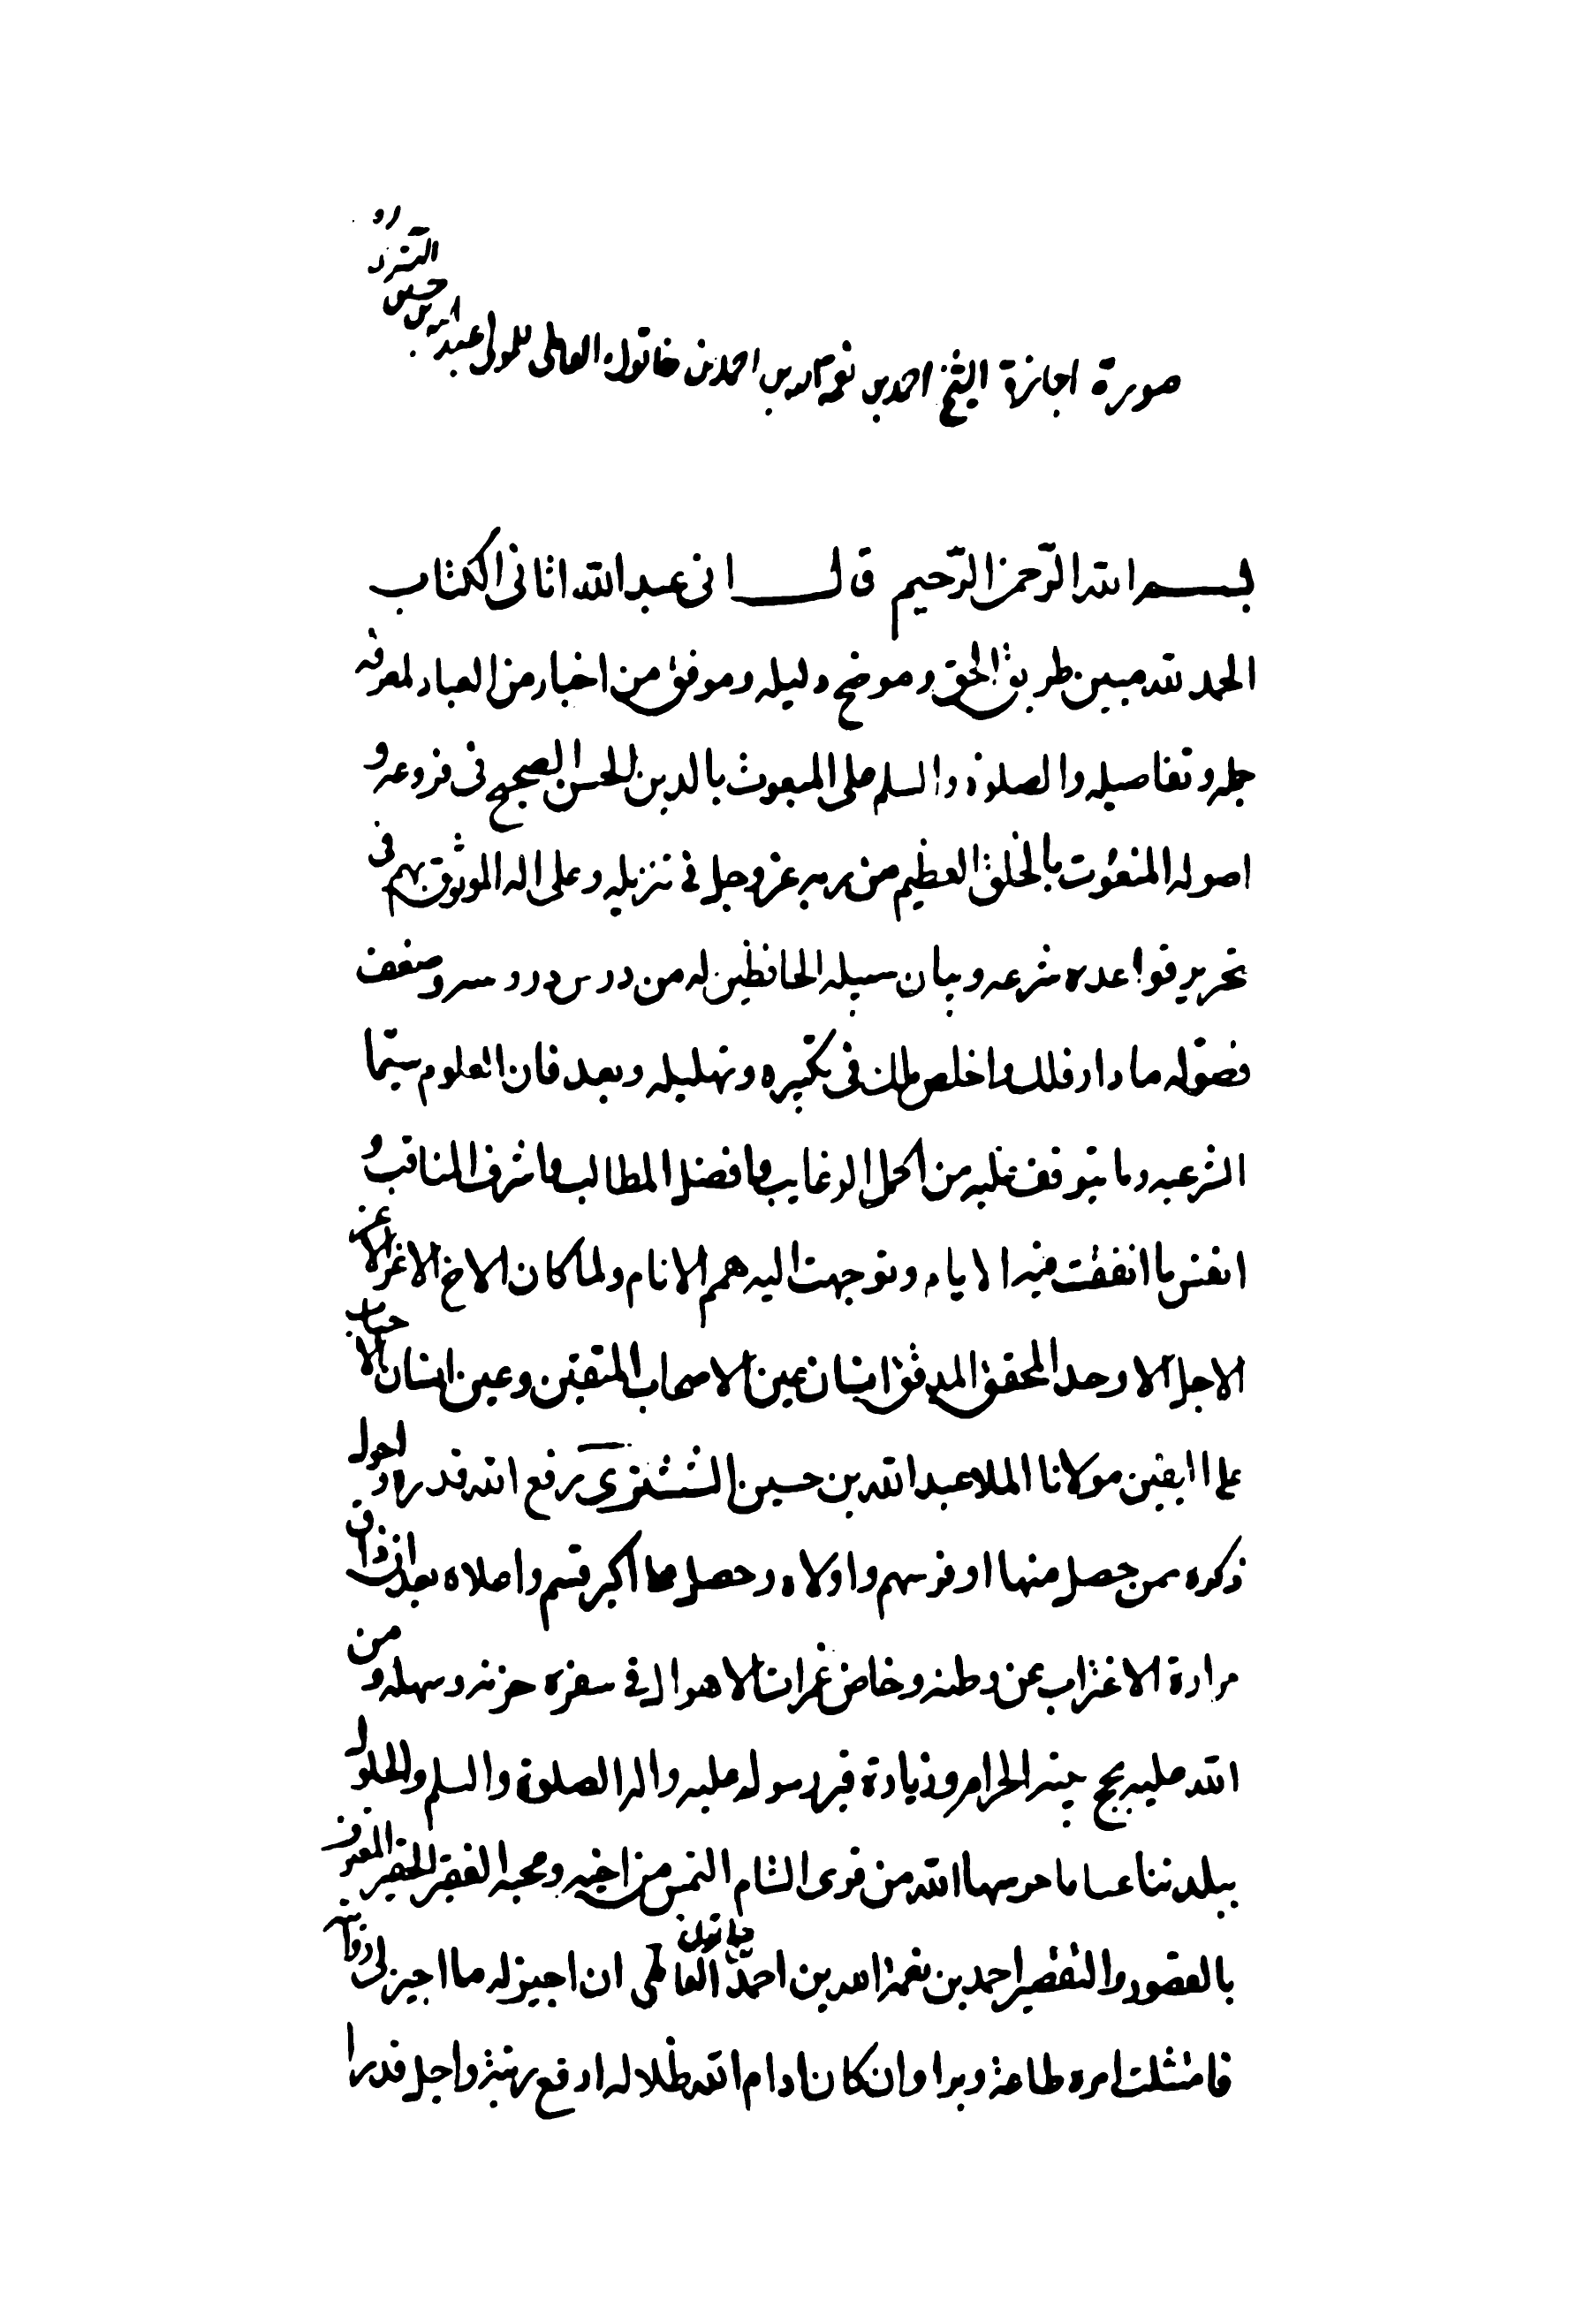 صورة اجازة الشيخ احمد بن نعمه الله بن احمد بن خاتون العاملي للمولى عبد الله بن حسين التستري ره
بسم الله الرحمن الرحيم قال اني عبد الله اتاني الكتاب
الحمد لله مبين طريق الحق وموضح دليله وموفق من اختار من العباد لمعرفه
جمله وتفاصيله والصلوة والسلم على المبعوث بالدين الحسن الصحيح في فروعه و
اصوله المنعوت بالخلق العظيم من ربه عز وجل في تنزيله وعلى اله الموثوق بهم في
تحرير قواعده شرعه وبيان سبيله الحافظين له من دروس وضعف
فصوله ما دار فلك واخلص ملك في تكبيره وتهليله وبعد فان العلوم سيما
الشرعيه وما يتوقف عليه من اكمل الرغايب وافضل المطالب واشرف المناقب و
انفس ما انفقت فيه الايام وتوجهت اليه همم الانام ولما كان الاخ الاغر الاعز
الاجل الاوحد المحقق المدقق انسان عين الاصحاب المتقين وعين انسان الاحباب
علما اليقين مولانا الملا عبد الله بن حسين الششتري رفع الله قدره واحول
ذكره ممن حصل منها اوفر سهم واولاه وحصل مما اكبر قسم واعلاه بعد ان ذاق
مرارة الاغتراب عن وطنه وخاض غمرات الاهوال في سفره حزنه وسهله ومن
الله عليه بحج بيته الحرام وزيارة قبر رسوله عليه واله الصلوة والسلم والحلول
ببلدتنا عيناثا حرسها الله من قرى الشام التمس من اخيه ومحبه الفقير الحقير المعترف
بالقصور والتقصير احمد بن نعمة الله بن احمد بن خاتون العاملي ان اجيز له ما اجيز لي روايته
فامتثلت امره طاعة وبرا وان كان ادام الله ظلاله ارفع رتبة واجل قدرا